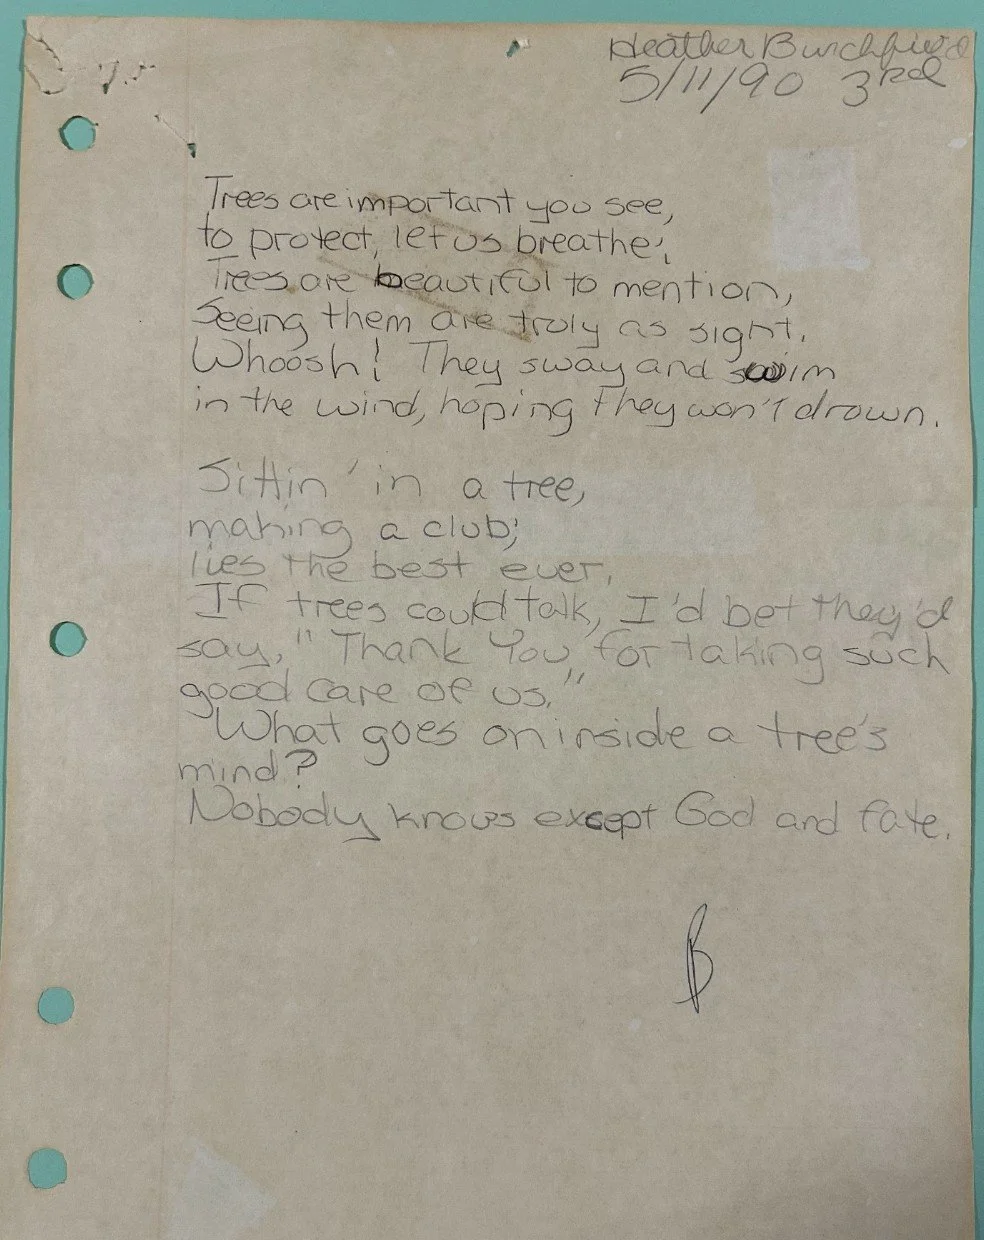 Heather Burchfield
5/11/90 3rd
Trees are important you see,
to protect, let us breathe;
Trees are beautiful to mention,
Seeing them are truly as sight.
Whoosh! They sway and swim
in the wind, hoping they won't drown.
Sittin' in a tree,
making a club;
lies the best ever,
If trees could talk, I'd bet they'd
say, "Thank You, for taking such
good care of us."
What goes on inside a tree's
mind?
Nobody knows except God and fate.
B